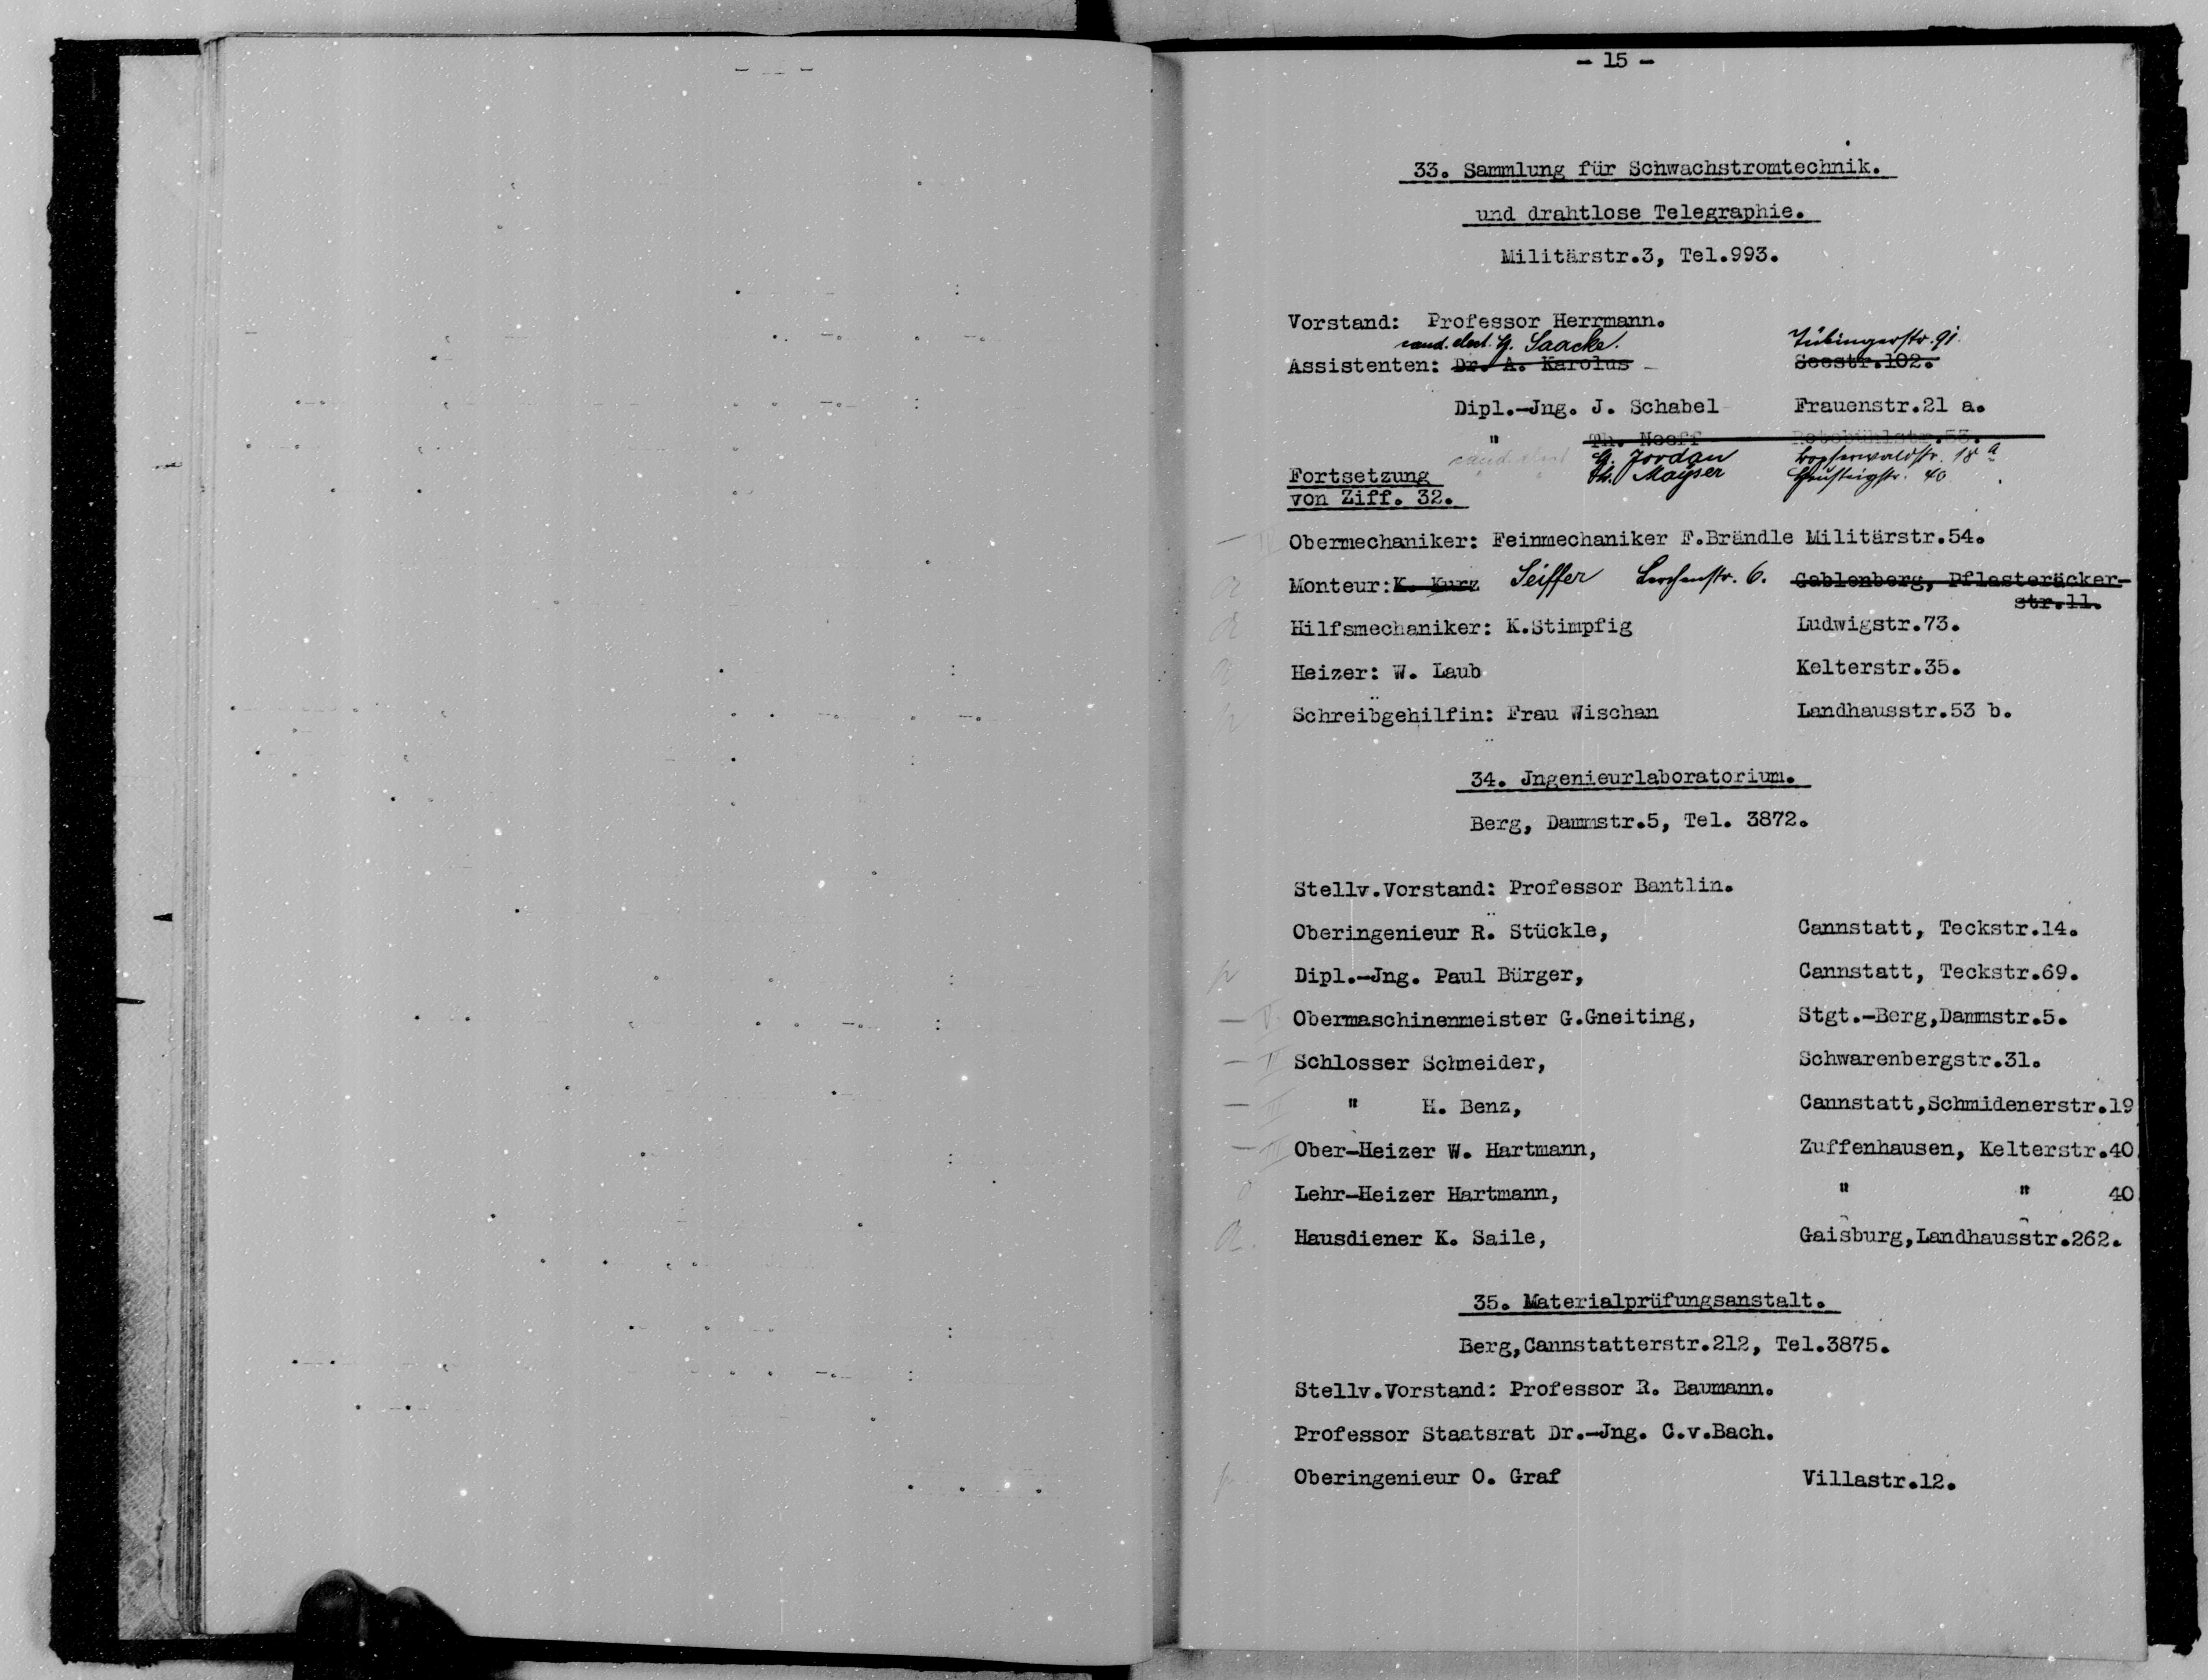 - 15 -
33. Sammlung für Schwachstromtechnik.
und drahtlose Telegraphie.
Militärstr.3, Tel.993.
Vorstand: Professor Herrmann.
cand. elect. G. Saacke. Tübingerstr. 91.
Assistenten: Dr. A. Karolus Seestr.102.
Dipl.-Jng. J. Schabel Frauenstr.21 a.
" Th. Neeff Rotebühlstr.53.
cand. elect. G. Jordan Hopferwaldstr. 18 a
Fortsetzung Th. Mayser Heusteigstr. 40
von Ziff. 32.
Obermechaniker: Feinmechaniker F.Brändle Militärstr.54.
Monteur: K. Kurz Seiffer Lerchenstr. 6. Gablenberg, Pflasteräcker-
str.11.
Hilfsmechaniker: K.Stimpfig Ludwigstr.73.
Heizer: W. Laub Kelterstr.35.
Schreibgehilfin: Frau Wischan Landhausstr.53 b.
34. Jngenieurlaboratorium.
Berg, Dammstr.5, Tel. 3872.
Stellv.Vorstand: Professor Bantlin.
Oberingenieur R. Stückle, Cannstatt, Teckstr.14.
Dipl.-Jng. Paul Bürger, Cannstatt, Teckstr.69.
Obermaschinenmeister G.Gneiting, Stgt.-Berg,Dammstr.5.
Schlosser Schneider, Schwarenbergstr.31.
" H. Benz, Cannstatt,Schmidenerstr.19
Ober-Heizer W. Hartmann, Zuffenhausen, Kelterstr.40
Lehr-Heizer Hartmann, " " 40
Hausdiener K. Saile, Gaisburg,Landhausstr.262.
35. Materialprüfungsanstalt.
Berg,Cannstatterstr.212, Tel.3875.
Stellv.Vorstand: Professor R. Baumann.
Professor Staatsrat Dr.-Jng. C.v.Bach.
Oberingenieur O. Graf Villastr.12.